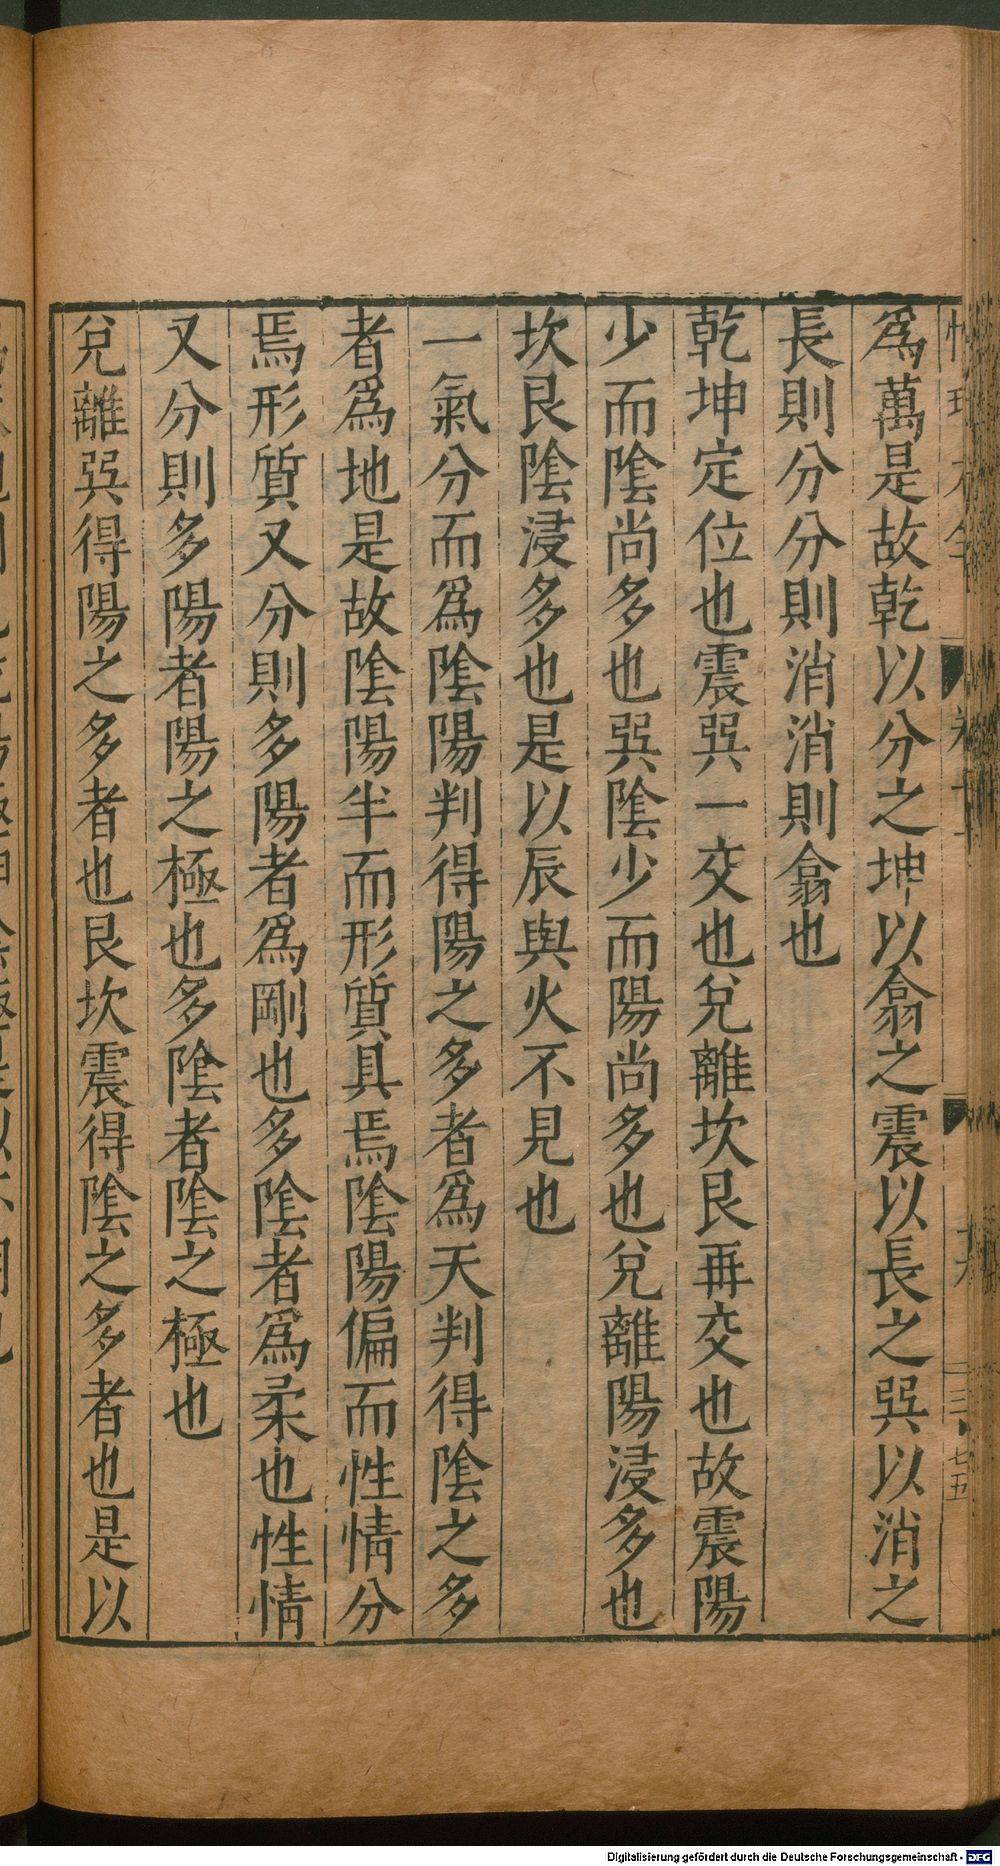 爲萬是故乾以分之坤以翕之震以長之巽以消之
長則分分則消消則翕也
乾坤定位也震巽一交也兌離坎艮再交也故震陽
少而陰尚多也巽陰少而陽尚多也兌離陽浸多也
坎艮陰浸多也是以辰與火不見也
一氣分而爲陰陽判得陽之多者爲天判得陰之多
者爲地是故陰陽半而形質具焉陰陽偏而性情分
焉形質又分則多陽者爲剛也多陰者爲柔也性情
又分則多陽者陽之極也多陰者陰之極也
兌離巽得陽之多者也艮坎震得陰之多者也是以
七五
Digitalisierung gefördert durch die Deutsche Forschungsgemeinschaft - DFG